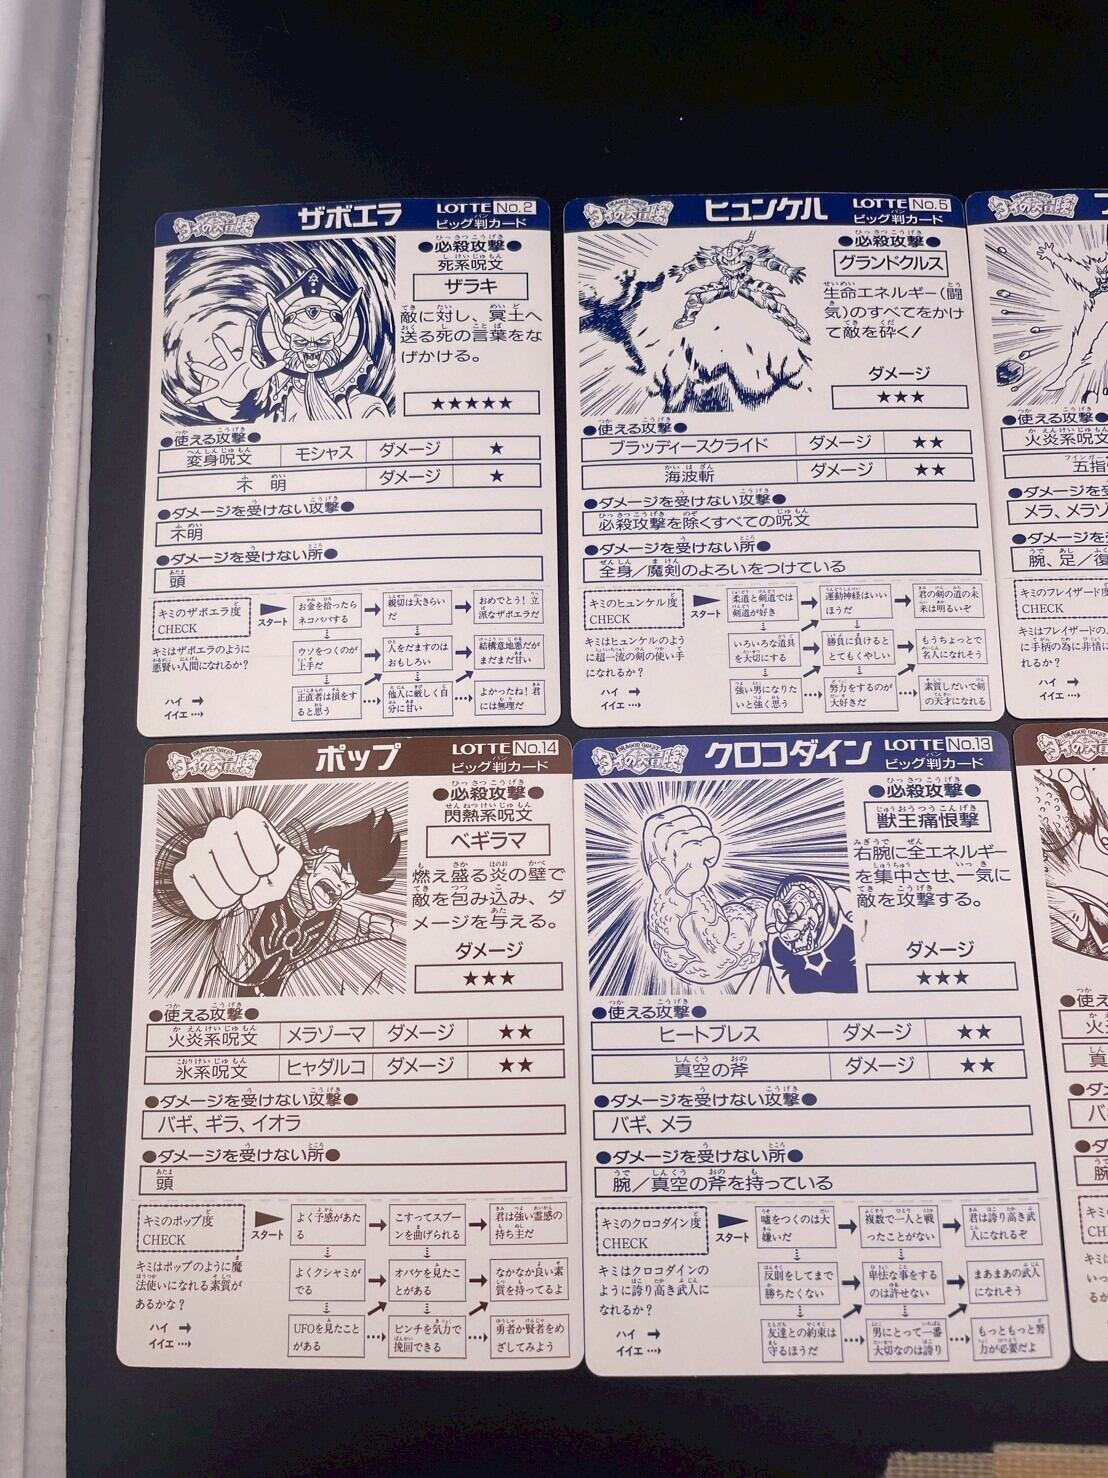 DRAGON QUEST
ダイの大冒険
ザボエラ
LOTTE No.2
ビッグ判カード
●必殺攻撃●
死系呪文
ザラキ
敵に対し、冥土へ
送る死の言葉をな
げかける。
★★★★★
●使える攻撃●
変身呪文 モシャス ダメージ ★
不明 ダメージ ★
●ダメージを受けない攻撃●
不明
●ダメージを受けない所●
頭
キミのザボエラ度
CHECK
キミはザボエラのように
悪賢い人間になれるか？
ハイ →
イイエ …›
スタート
お金を拾ったら
ネコババする
親切は大きらい
だ
おめでとう！立
派なザボエラだ
ウソをつくのが
上手だ
人をだますのは
おもしろい
結構意地悪だが
まだまだ甘い
正直者は損をす
ると思う
他人に厳しく自
分に甘い
よかったね！君
には無理だ
ダイの大冒険
ヒュンケル
LOTTE No.5
ビッグ判カード
●必殺攻撃●
グランドクルス
生命エネルギー(闘
気)のすべてをかけ
て敵を砕く！
ダメージ
★★★
●使える攻撃●
ブラッディースクライド ダメージ ★★
海波斬 ダメージ ★★
●ダメージを受けない攻撃●
必殺攻撃を除くすべての呪文
●ダメージを受けない所●
全身／魔剣のよろいをつけている
キミのヒュンケル度
CHECK
キミはヒュンケルのよう
に超一流の剣の使い手
になれるか？
ハイ →
イイエ …›
スタート
柔道と剣道では
剣道が好き
運動神経はいい
ほうだ
君の剣の道の未
来は明るいぞ
いろいろな道具
を大切にする
勝負に負けると
とてもくやしい
もうちょっとで
名人になれそう
強い男になりた
いと強く思う
努力をするのが
大好きだ
素質しだいで剣
の天才になれる
火炎系呪文
五指
メラ、メラゾ
腕、足／復
キミのフレイザード度
CHECK
キミはフレイザードの
に手柄の為に非情に
れるか？
ハイ →
イイエ …›
DRAGON QUEST
ダイの大冒険
ポップ
LOTTE No.14
ビッグ判カード
●必殺攻撃●
閃熱系呪文
ベギラマ
燃え盛る炎の壁で
敵を包み込み、ダ
メージを与える。
ダメージ
★★★
●使える攻撃●
火炎系呪文 メラゾーマ ダメージ ★★
氷系呪文 ヒャダルコ ダメージ ★★
●ダメージを受けない攻撃●
バギ、ギラ、イオラ
●ダメージを受けない所●
頭
キミのポップ度
CHECK
キミはポップのように魔
法使いになれる素質が
あるかな？
ハイ →
イイエ …›
スタート
よく予感があた
る
こすってスプー
ンを曲げられる
君は強い霊感の
持ち主だ
よくクシャミが
でる
オバケを見たこ
とがある
なかなか良い素
質を持ってるよ
UFOを見たこと
がある
ピンチを気力で
挽回できる
勇者か賢者をめ
ざしてみよう
DRAGON QUEST
ダイの大冒険
クロコダイン
LOTTE No.13
ビッグ判カード
●必殺攻撃●
獣王痛恨撃
右腕に全エネルギー
を集中させ、一気に
敵を攻撃する。
ダメージ
★★★
●使える攻撃●
ヒートブレス ダメージ ★★
真空の斧 ダメージ ★★
●ダメージを受けない攻撃●
バギ、メラ
●ダメージを受けない所●
腕／真空の斧を持っている
キミのクロコダイン度
CHECK
キミはクロコダインの
ように誇り高き武人に
なれるか？
ハイ →
イイエ …›
スタート
嘘をつくのは大
嫌いだ
複数で一人と戦
ったことがない
君は誇り高き武
人になれるぞ
反則をしてまで
勝ちたくない
卑怯な事をする
のは許せない
まあまあの武人
になれそう
友達との約束は
守るほうだ
男にとって一番
大切なのは誇り
もっともっと努
力が必要だよ